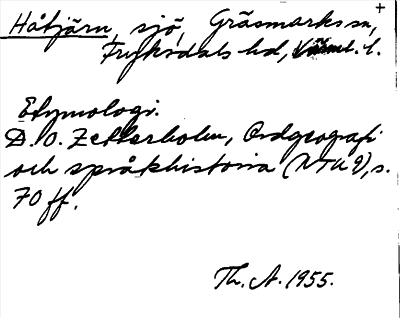 Håtjärn, sjö, Gräsmarks sn, +
Fryksdals hd, Värml. l.
Etymologi.
D. O. Zetterholm, Ordgeografi
och språkhistoria (NTU 9), s.
70 ff.
Th. A. 1955.